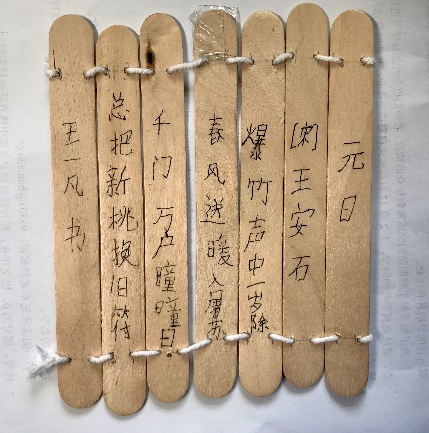 元日
[宋]王安石
爆竹声中一岁除
春风送暖入屠苏
千门万户曈曈日
总把新桃换旧符
王一凡书